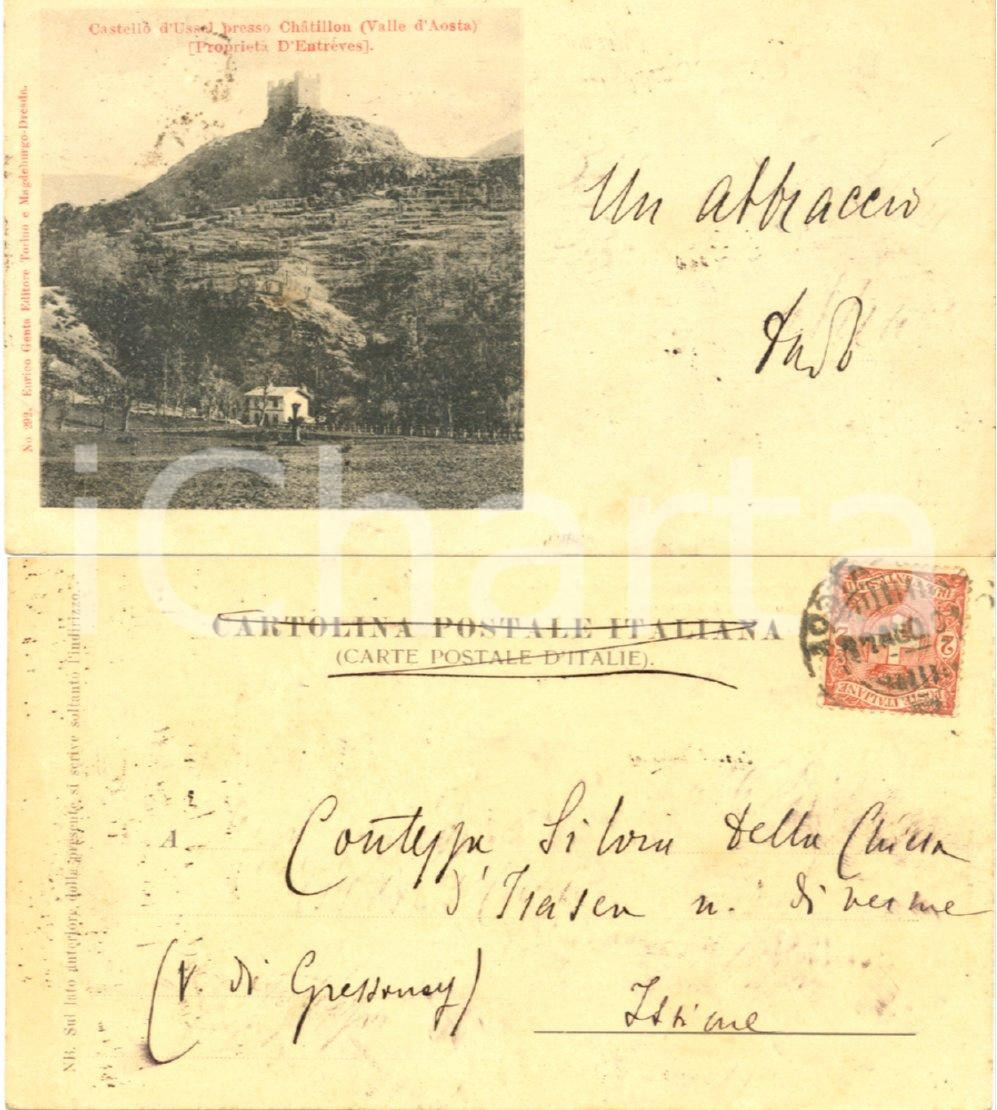 Castello d'Ussel presso Châtillon (Valle d'Aosta)
[Proprietà D'Entrèves].
No 292. Enrico Genta Editore Torino e Magdeburgo-Dresda.
Un abbraccio
iCharta
CARTOLINA POSTALE ITALIANA
(CARTE POSTALE D'ITALIE).
POSTE ITALIANE
2
NB. Sul lato anteriore della presente si scrive soltanto l'indirizzo.
A
Contessa Silvia Della Chiesa
d'Isasca n.
(V. di Gressoney)
Issime